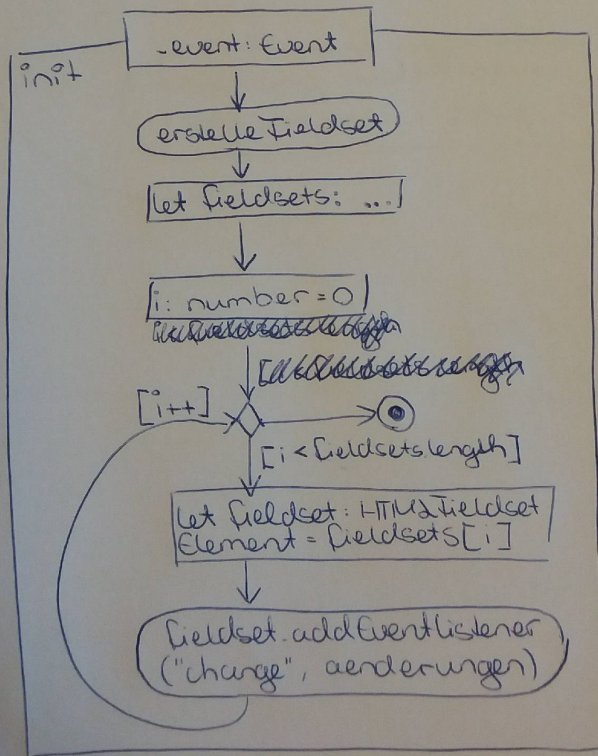 _event: Event
init
erstelle Fieldset
let fieldsets: ...
i: number = 0
[i++]
[i < fieldsets.length]
let fieldset: HTMLFieldset
Element = fieldsets[i]
fieldset.addEventListener
("change", aenderungen)